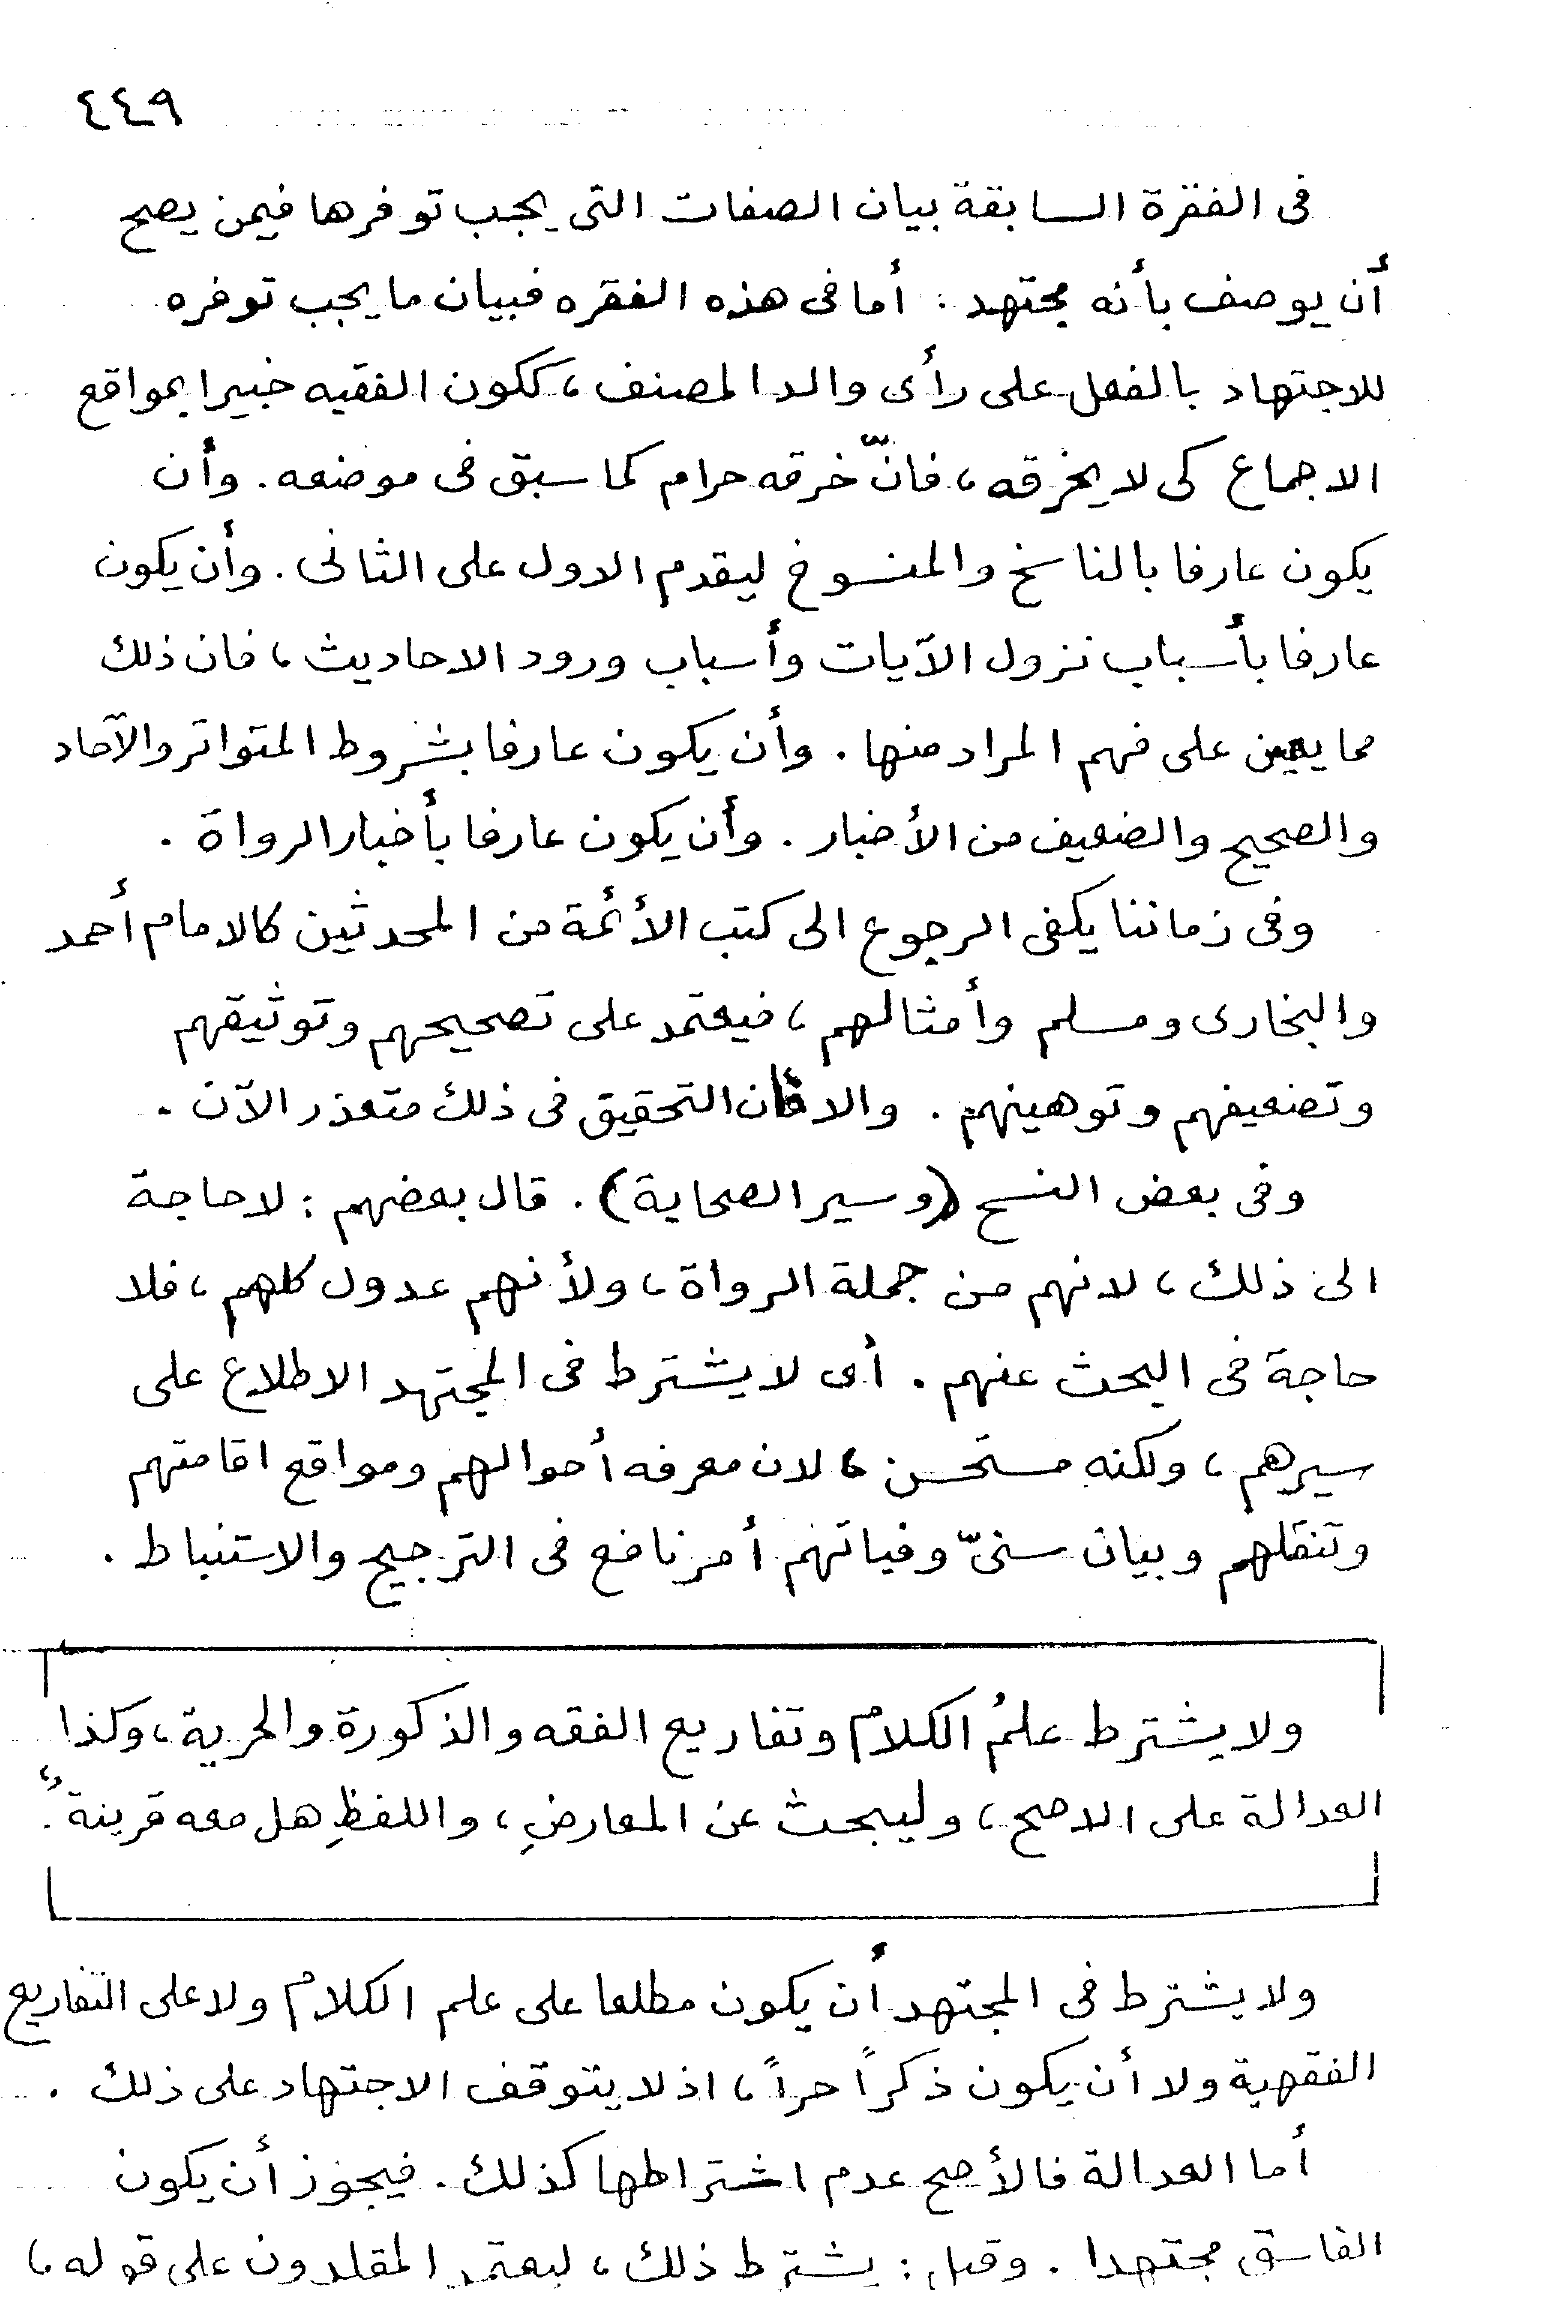 ٤٤٩
فى الفقرة السابقة بيان الصفات التى يجب توفرها فيمن يصح
أن يوصف بأنه مجتهد . أما فى هذه الفقره فبيان ما يجب توفره
للاجتهاد بالفعل على رأى والد المصنف ، ككون الفقيه خبيرا بمواقع
الاجماع كى لا يخرقه ، فانّ خرقه حرام كما سبق فى موضعه . وأن
يكون عارفا بالناسخ والمنسوخ ليقدم الاول على الثانى . وأن يكون
عارفا بأسباب نزول الآيات وأسباب ورود الاحاديث ، فان ذلك
مما يعين على فهم المراد منها . وأن يكون عارفا بشروط المتواتر والآحاد
والصحيح والضعيف من الأخبار . وأن يكون عارفا بأخبار الرواة .
وفى زماننا يكفى الرجوع الى كتب الأئمة من المحدثين كالامام أحمد
والبخارى ومسلم وأمثالهم ، فيعتمد على تصحيحهم وتوثيقهم
وتضعيفهم وتوهينهم . والا فأن التحقيق فى ذلك متعذر الآن .
وفى بعض النسخ ( وسير الصحابة ) . قال بعضهم : لا حاجة
الى ذلك ، لانهم من جملة الرواة ، ولأنهم عدول كلهم ، فلا
حاجة فى البحث عنهم . أى لا يشترط فى المجتهد الاطلاع على
سيرهم ، ولكنه مستحسن ، لان معرفه أحوالهم ومواقع اقامتهم
وتنقلهم وبيان سنىّ وفياتهم أمر نافع فى الترجيح والاستنباط .
ولا يشترط علمُ الكلام وتفاريع الفقه والذكورة والحرية ، وكذا
العدالة على الاصح ، وليبحث عن المعارضِ ، واللفظِ هل معه قرينةٌ .
ولا يشترط فى المجتهد أن يكون مطلعا على علم الكلام ولا على التفاريع
الفقهية ولا أن يكون ذكراً حراً ، اذ لا يتوقف الاجتهاد على ذلك .
أما العدالة فالأصح عدم اشتراطها كذلك . فيجوز أن يكون
الفاسق مجتهدا . وقيل : يشترط ذلك ، ليعتمد المقلدون على قوله ،